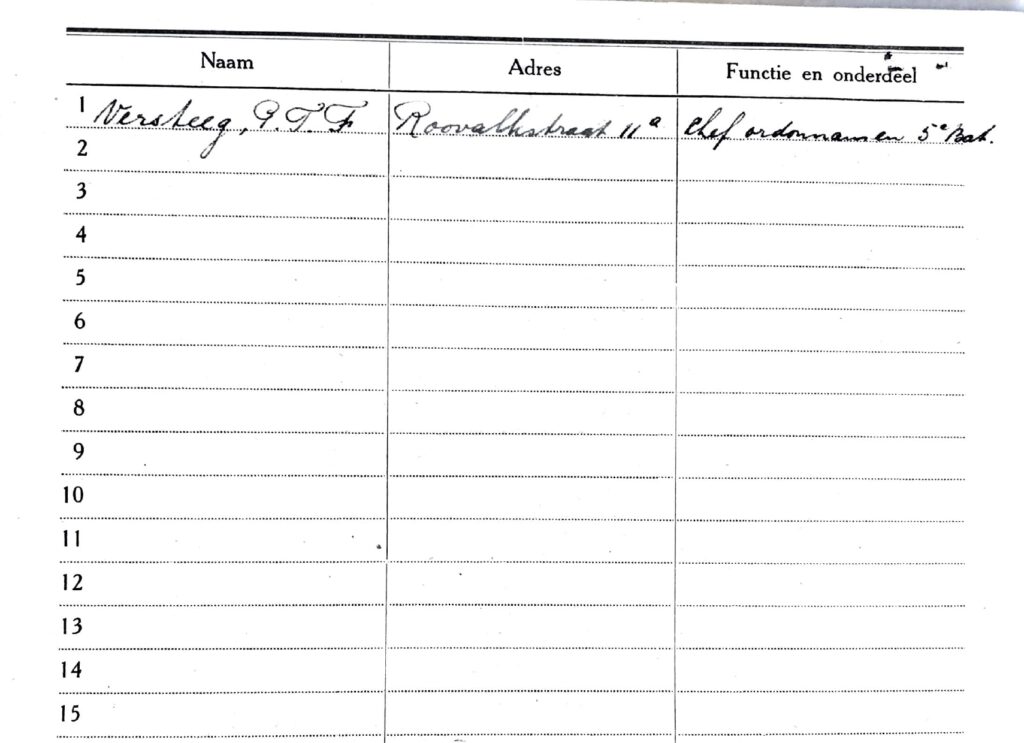 Naam Adres Functie en onderdeel
1 Versteeg, P.T.F. Roovalkstraat 11a Chef ordonnansen 5e Bat.
2
3
4
5
6
7
8
9
10
11
12
13
14
15